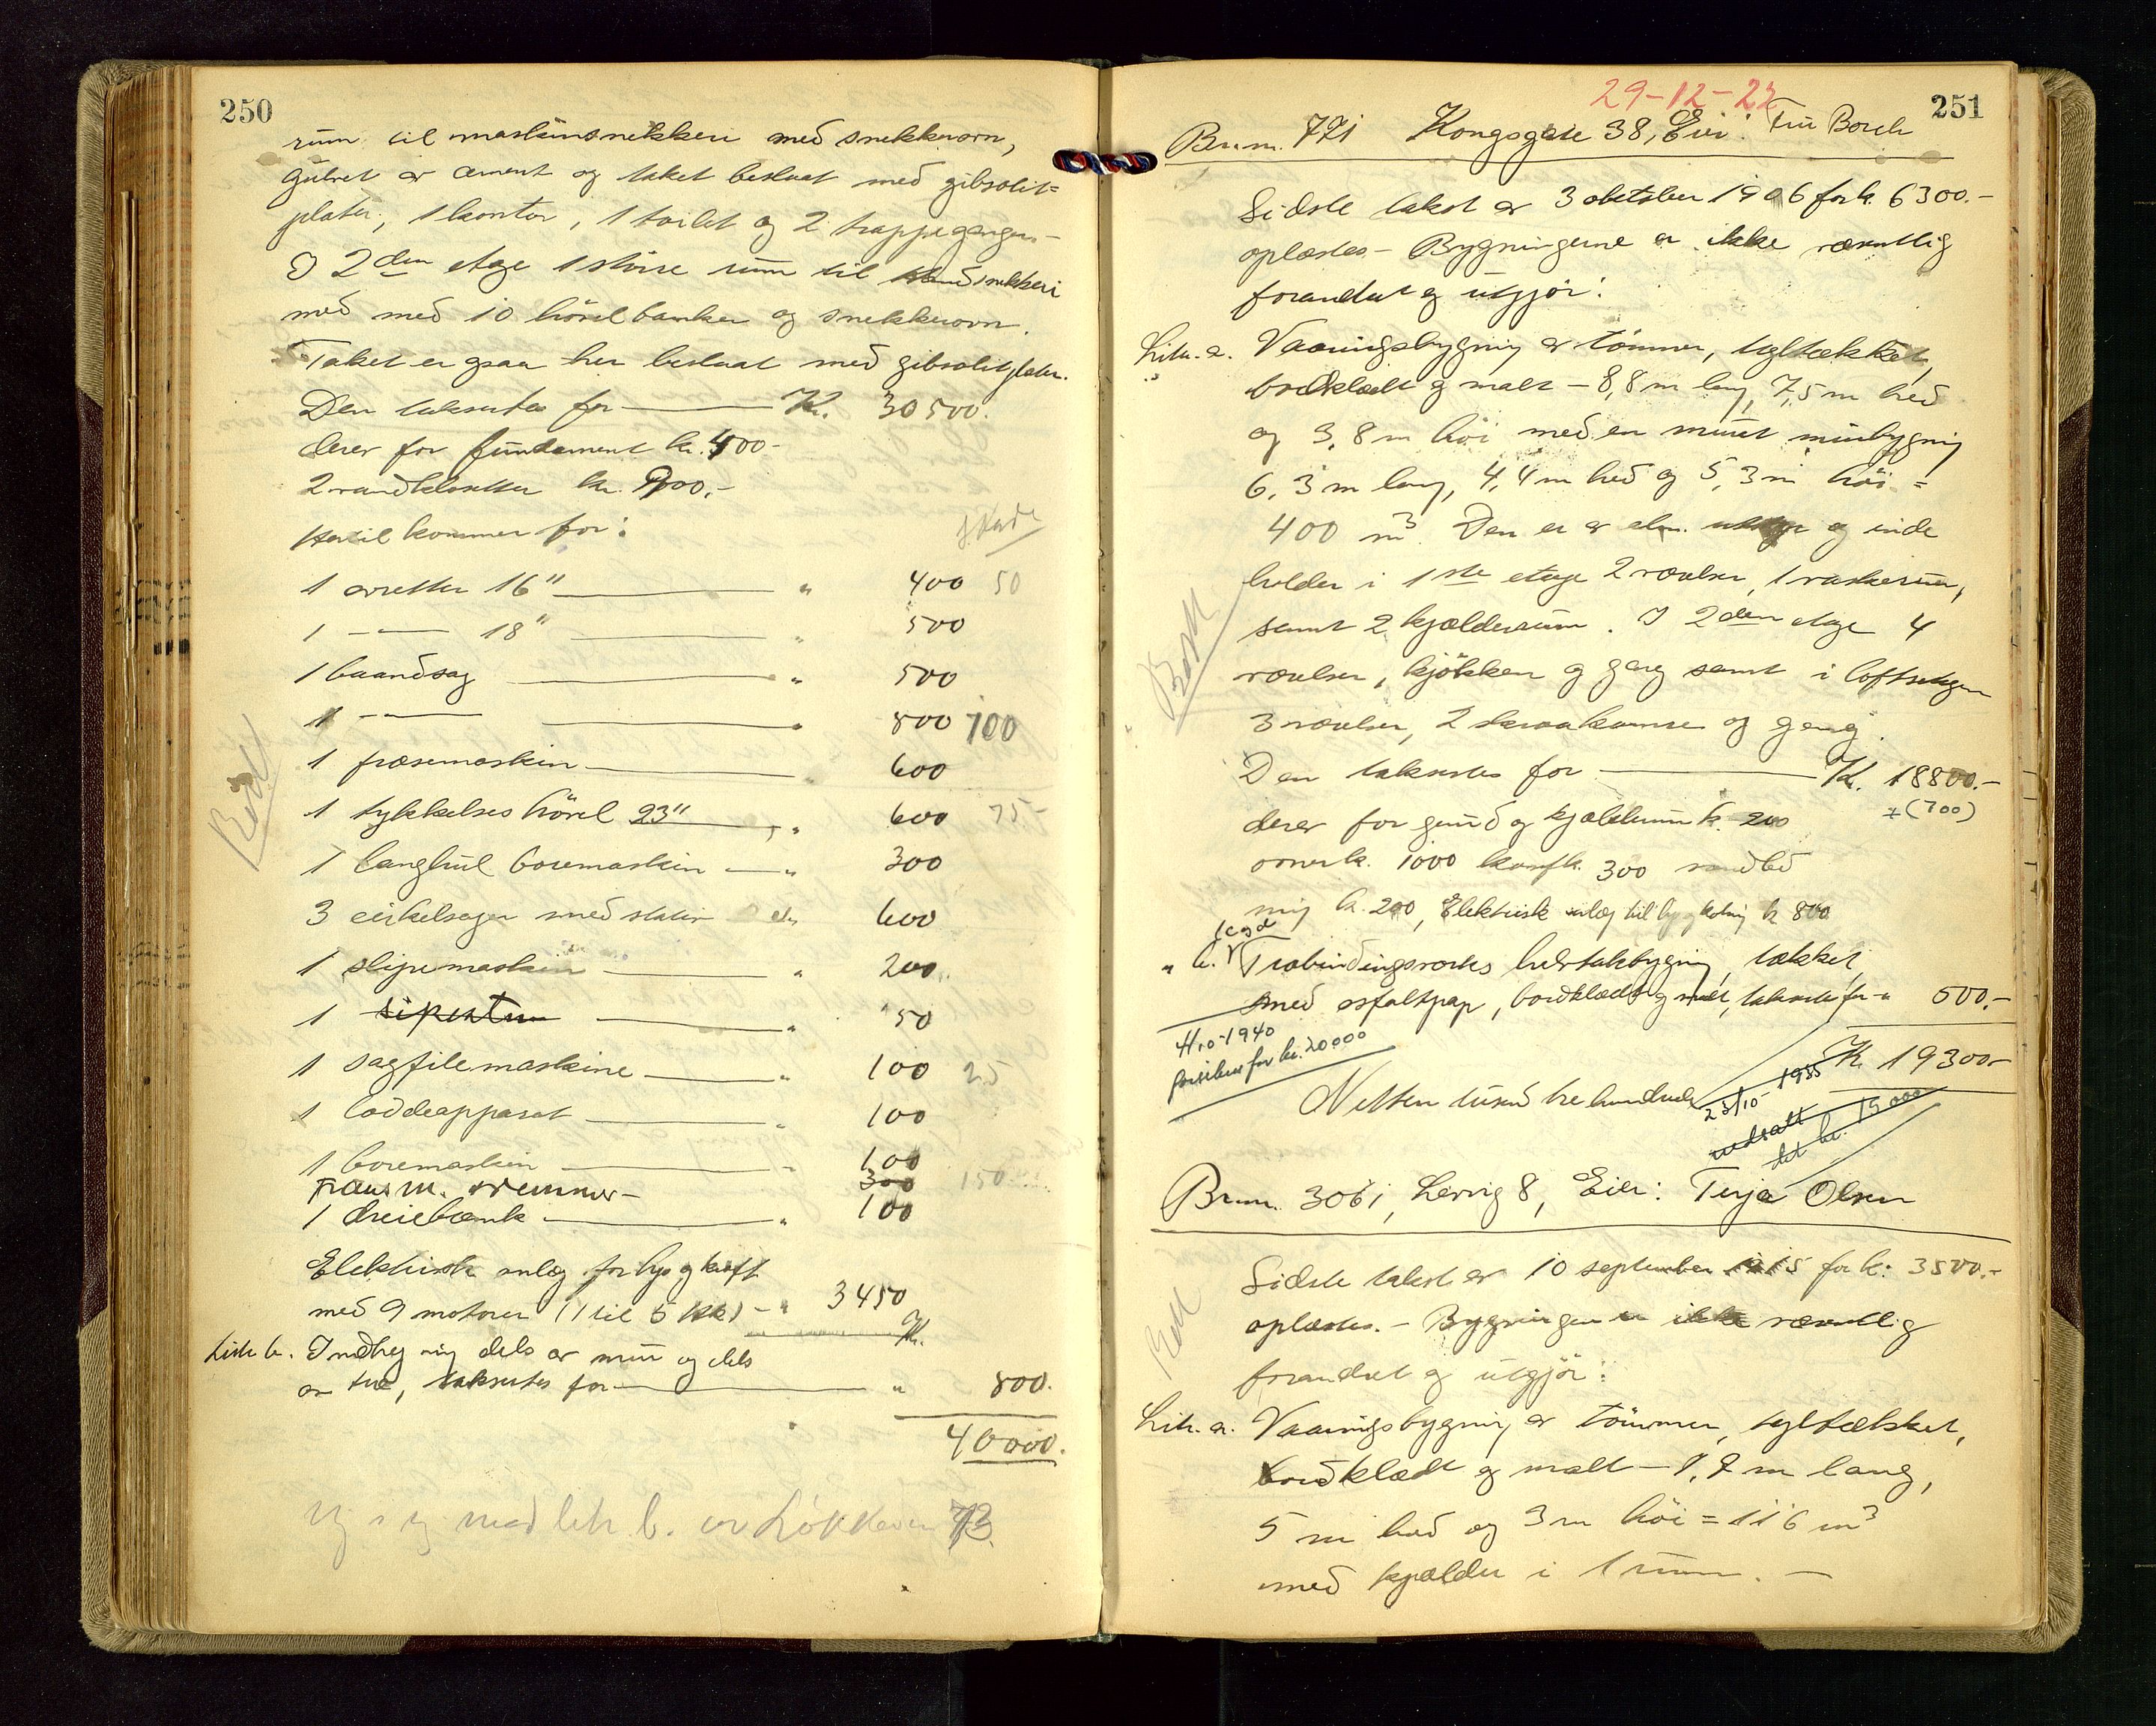 250
rum til maskinsnekkeri med snekkerovn,
gulvet av cement og taket beslaat med gibsolit=
plater, 1 kontor, 1 toilet og 2 trappeganger.-
I 2den etage 1 större rum til Haandsnekkeri
med med 10 hövelbænker og snekkerovn.
Taket er ogsaa her beslaat med gibsolitplater.
Den takseres for Kr. 30500.
derav for fundament kr. 400-
2 vandklosetter kr. 900.-
Hertil kommer for:
Skade
1 avretter 16" " 400 50
1 -"- 18" " 500
1 baandsag " 500
1 -"- " 800 100
1 fræsemaskin " 600
1 tykkelses hövel 23" " 600 75.-
1 langhul boremaskin " 300
3 cirkelsager med stativ 600
1 slipemaskin " 200
1 " 50
1 sagfilemaskine " 100 25
1 loddeapparat " 100
1 boremaskin " 100
Transm. Remmer- 300 150
1 dreiebænk " 100
Elektrisk anlæg for lys og kraft
med 9 motorer (1 til 5 HK) - " 3450
Kr.
Litr b. Indhegning dels av mur og dels
av træ, takseres for " 800.
40000.
med litr. b. er Lökkeveien 73.
Besk
29-12-22
251
Br.nr. 771 Kongsgate 38, Eier: Fru Borch
Sidste takst av 3 oktober 1906 for kr. 6300.-
oplæstes.- Bygningerne er ikke væsentlig
forandret og utgjör:
Litr. a. Vaaningsbygning av tömmer, tegltækket,
bordklædt og malt - 8,8 m lang, 7,5 m bred
og 3,8 m höi med en muret minbygning
6,3 m lang, 4,4 m bred og 5,3 m höi =
400 m3. Den er av alm. og inde
holder i 1ste etage 2 værelser, 1 vaskerum,
samt 2 kjælderrum. I 2den etage 4
værelser, kjökken og gang samt i loftsetagen
3 værelser, 2 skraakamre og gang.
Den takseres for Kr. 18800.-
+(700)
derav for grund og kjælderrum kr. 200
ovner kr. 1000 komf kr. 300 vandled
ning kr. 200, Elektrisk anlæg til lys og kokning kr 800
" b. Træbindingsverks halvtaksbygning, tækket
med asfaltpap, bordklædt og malt, takseres for " 500.-
4/10-1940
forsikres for kr. 20000
Kr 19300-
Nitten tusind tre hundrede
23/10-1935
nedsatt
til kr. 15000
Br.nr. 306i, Lervig 8, Eier: Terje Olsen
Sidste takst av 10 september 1915 for kr. 3500.-
oplæstes.- Bygningen er ikke væsentlig
forandret og utgjör:
Litr. a. Vaaningsbygning av tömmer, tegltækket,
bordklædt og malt - 7,7 m lang,
5 m bred og 3 m höi = 116 m3
med kjælder i 1 rum. -
Besk
Besk